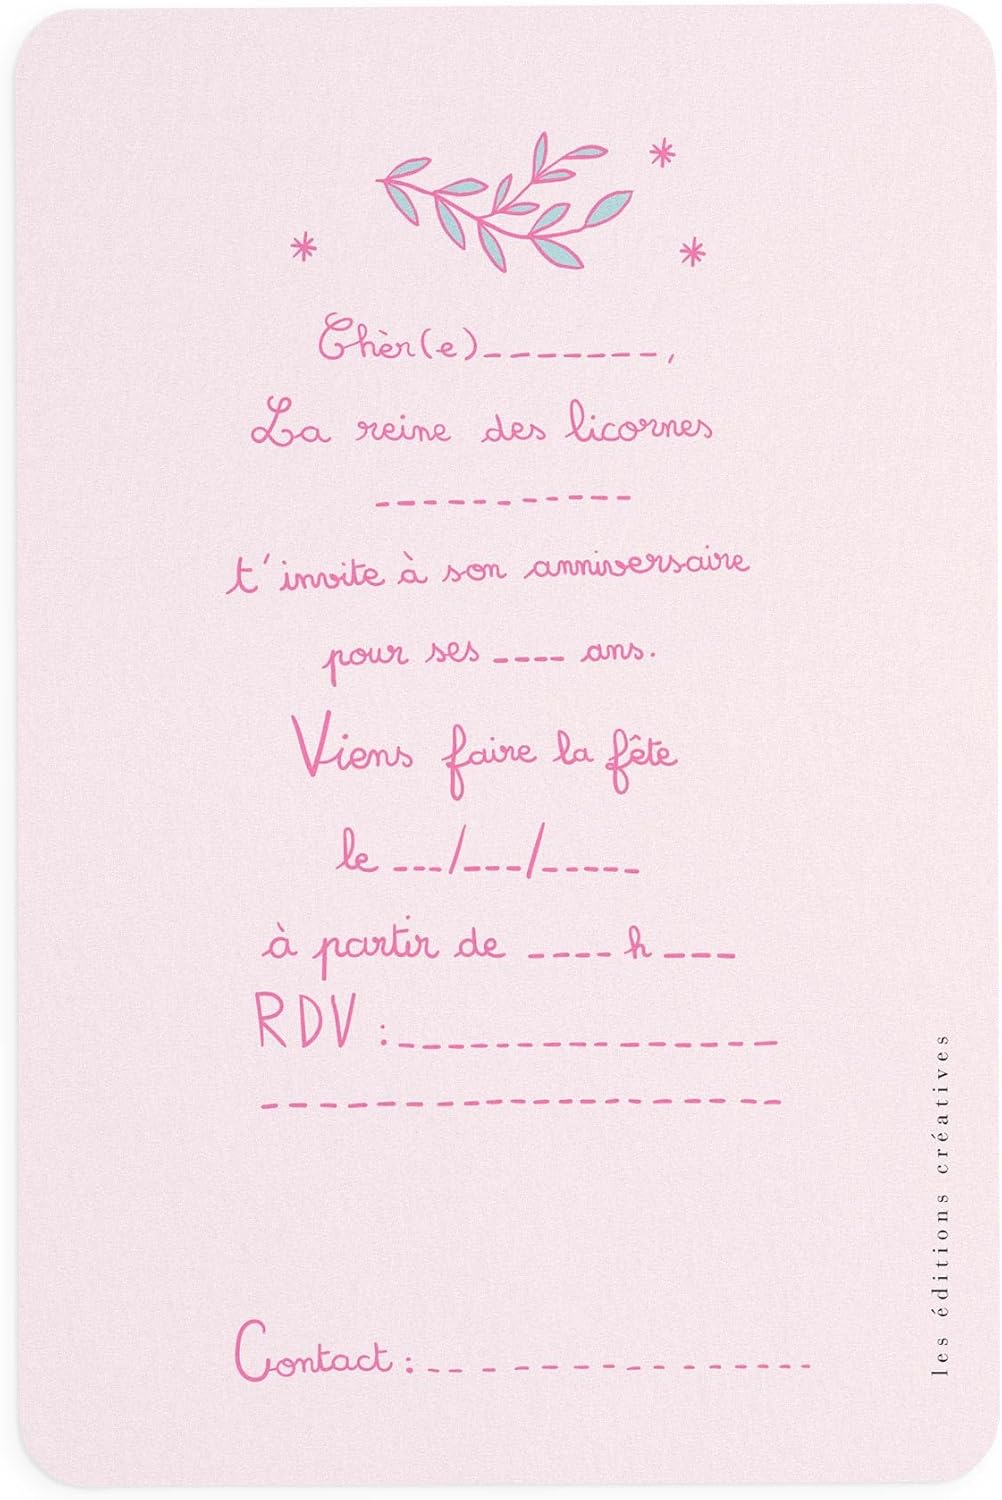 Chèr(e)_______,
La reine des licornes
___________
t'invite à son anniversaire
pour ses ____ ans.
Viens faire la fête
le ___/___/_____
à partir de ____ h ___
RDV :________________
__________________
Contact : _______________
les éditions créatives